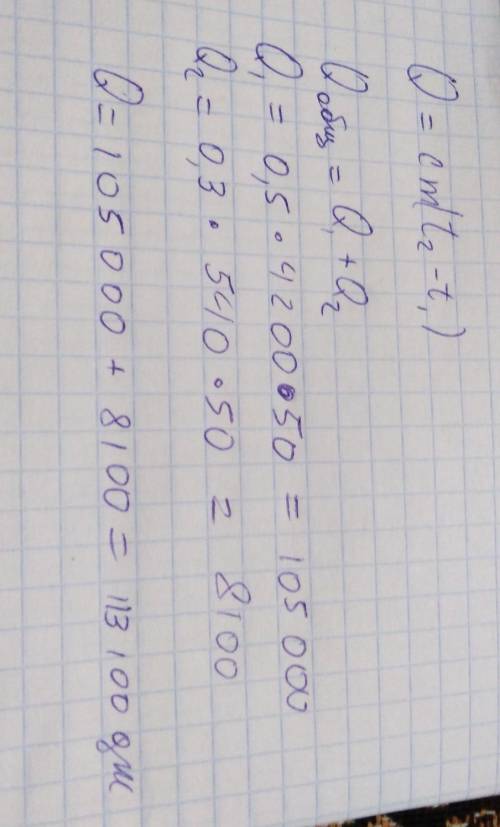 Q = cm(t₂ - t₁)
Qобщ = Q₁ + Q₂
Q₁ = 0,5 · 4200 · 50 = 105 000
Q₂ = 0,3 · 540 · 50 = 8100
Q = 105 000 + 8100 = 113 100 дж